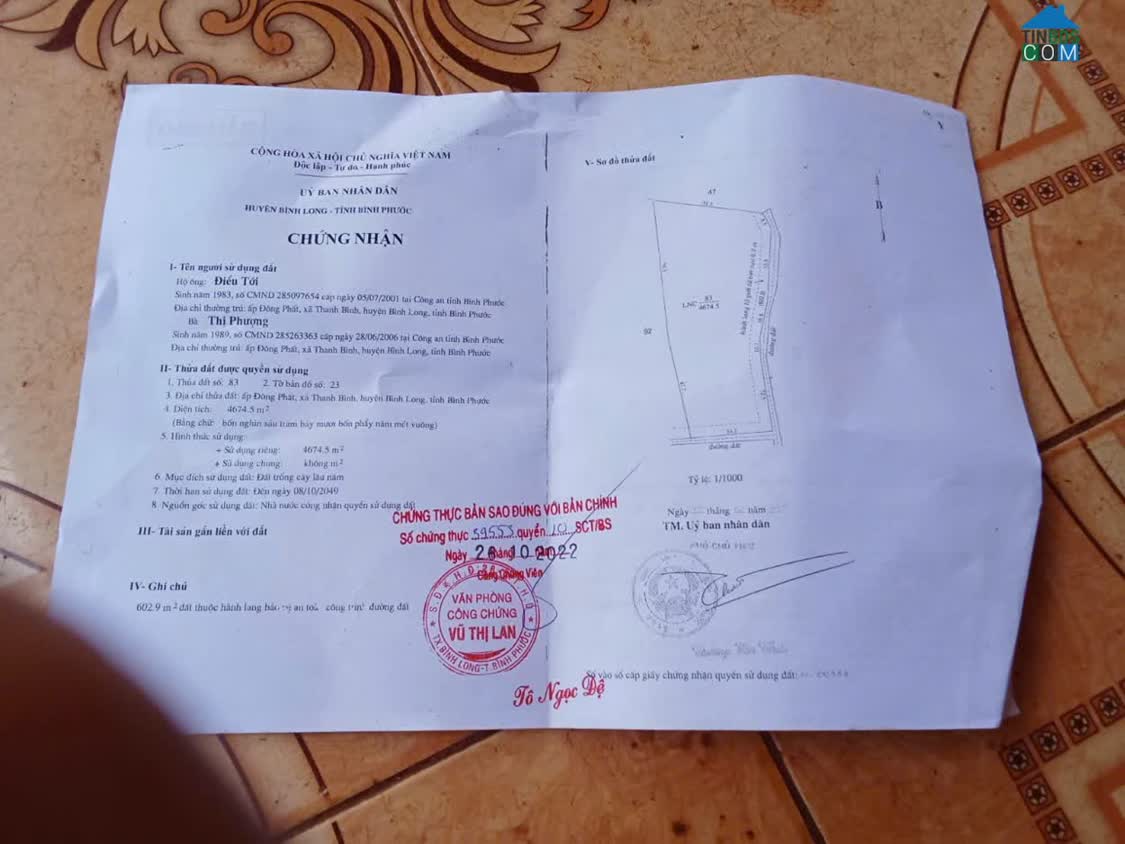 TINBDS
COM
CỘNG HÒA XÃ HỘI CHỦ NGHĨA VIỆT NAM
Độc lập - Tự do - Hạnh phúc
UỶ BAN NHÂN DÂN
HUYỆN BÌNH LONG - TỈNH BÌNH PHƯỚC
CHỨNG NHẬN
I- Tên người sử dụng đất
Hộ ông: Điểu Tới
Sinh năm 1983, số CMND 285097654 cấp ngày 05/07/2001 tại Công an tỉnh Bình Phước
Địa chỉ thường trú: ấp Đông Phất, xã Thanh Bình, huyện Bình Long, tỉnh Bình Phước
Bà Thị Phượng
Sinh năm 1989, số CMND 285263363 cấp ngày 28/06/2006 tại Công an tỉnh Bình Phước
Địa chỉ thường trú: ấp Đông Phất, xã Thanh Bình, huyện Bình Long, tỉnh Bình Phước
II- Thửa đất được quyền sử dụng
1. Thửa đất số: 83 2. Tờ bản đồ số: 23
3. Địa chỉ thửa đất: ấp Đông Phất, xã Thanh Bình, huyện Bình Long, tỉnh Bình Phước
4. Diện tích: 4674.5 m²
(Bằng chữ: bốn nghìn sáu trăm bảy mươi bốn phẩy năm mét vuông)
5. Hình thức sử dụng:
+ Sử dụng riêng: 4674.5 m²
+ Sử dụng chung: không m²
6. Mục đích sử dụng đất: Đất trồng cây lâu năm
7. Thời hạn sử dụng đất: Đến ngày 08/10/2049
8. Nguồn gốc sử dụng đất: Nhà nước công nhận quyền sử dụng đất
III- Tài sản gắn liền với đất
IV- Ghi chú
602.9 m² đất thuộc hành lang bảo vệ an toàn công trình đường đất
CHỨNG THỰC BẢN SAO ĐÚNG VỚI BẢN CHÍNH
Số chứng thực 59553 quyển 10 SCT/BS
Ngày 26 tháng 10 năm 2022
Công Chứng Viên
VĂN PHÒNG
CÔNG CHỨNG
VŨ THỊ LAN
TX.BÌNH LONG-T.BÌNH PHƯỚC
Tô Ngọc Dệ
V- Sơ đồ thửa đất
B
47
92
LNC 83
4674.5
đường đất
đường đất
Tỷ lệ: 1/1000
Ngày tháng năm
TM. Uỷ ban nhân dân
PHÓ CHỦ TỊCH
Số vào sổ cấp giấy chứng nhận quyền sử dụng đất: